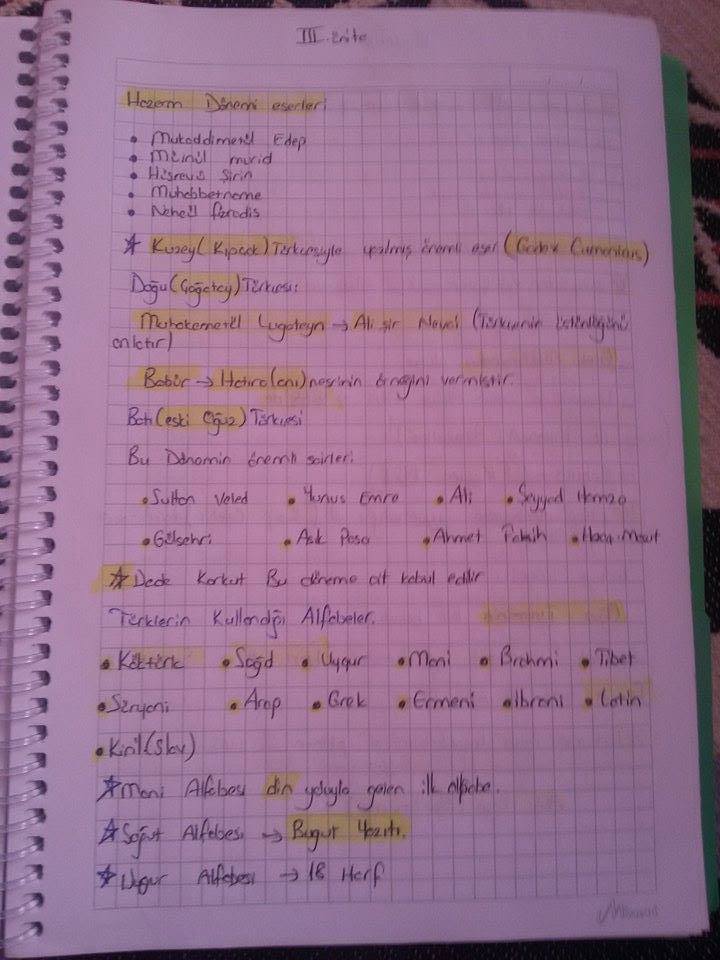 III. Ünite
Harezm Dönemi eserleri
• Mukaddimetül Edep
• Müinül mürid
• Hüsrevü Şirin
• Muhabbetname
• Nehcü'l feradis
☆ Kuzey (Kıpçak) Türkçesiyle yazılmış önemli eser (Codex Cumanicus)
Doğu (Çağatay) Türkçesi:
Muhakemetül Lugateyn → Ali şir Nevai (Türkçenin üstünlüğünü
anlatır)
Babür → Hatıra (anı) nesrinin örneğini vermiştir.
Batı (eski Oğuz) Türkçesi
Bu Dönemin önemli şairleri
• Sultan Veled • Yunus Emre • Ali • Seyyad Hamza
• Gülşehri • Aşık Paşa • Ahmet Fakih • Hoca Mesut
☆ Dede Korkut Bu döneme ait kabul edilir
Türklerin Kullandığı Alfabeler.
• Köktürk • Soğd • Uygur • Mani • Brahmi • Tibet
• Süryani • Arap • Grek • Ermeni • İbrani • Latin
• Kiril (Slav)
☆ Mani Alfabesi din yoluyla gelen ilk alfabe.
☆ Soğut Alfabesi → Bugut Yazıtı.
☆ Uygur Alfabesi → 18 Harf